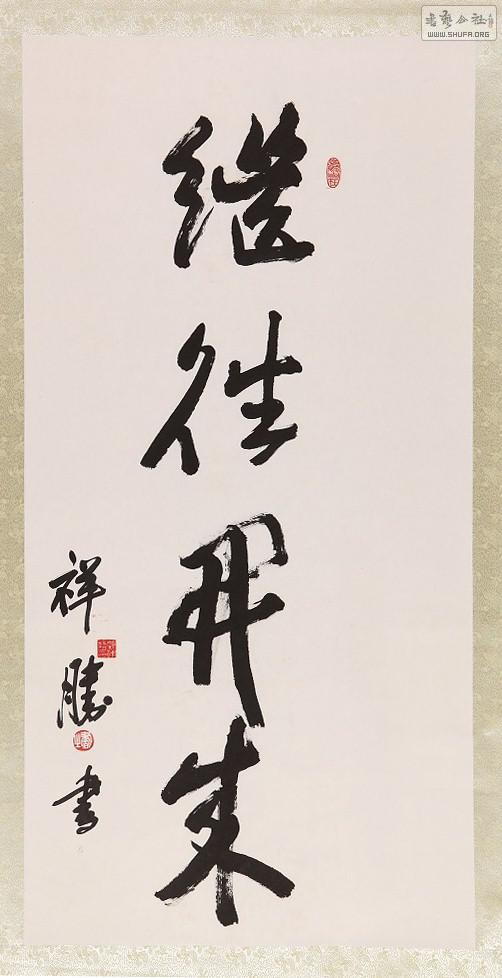 继往开来
祥胜书
书艺公社
WWW.SHUFA.ORG